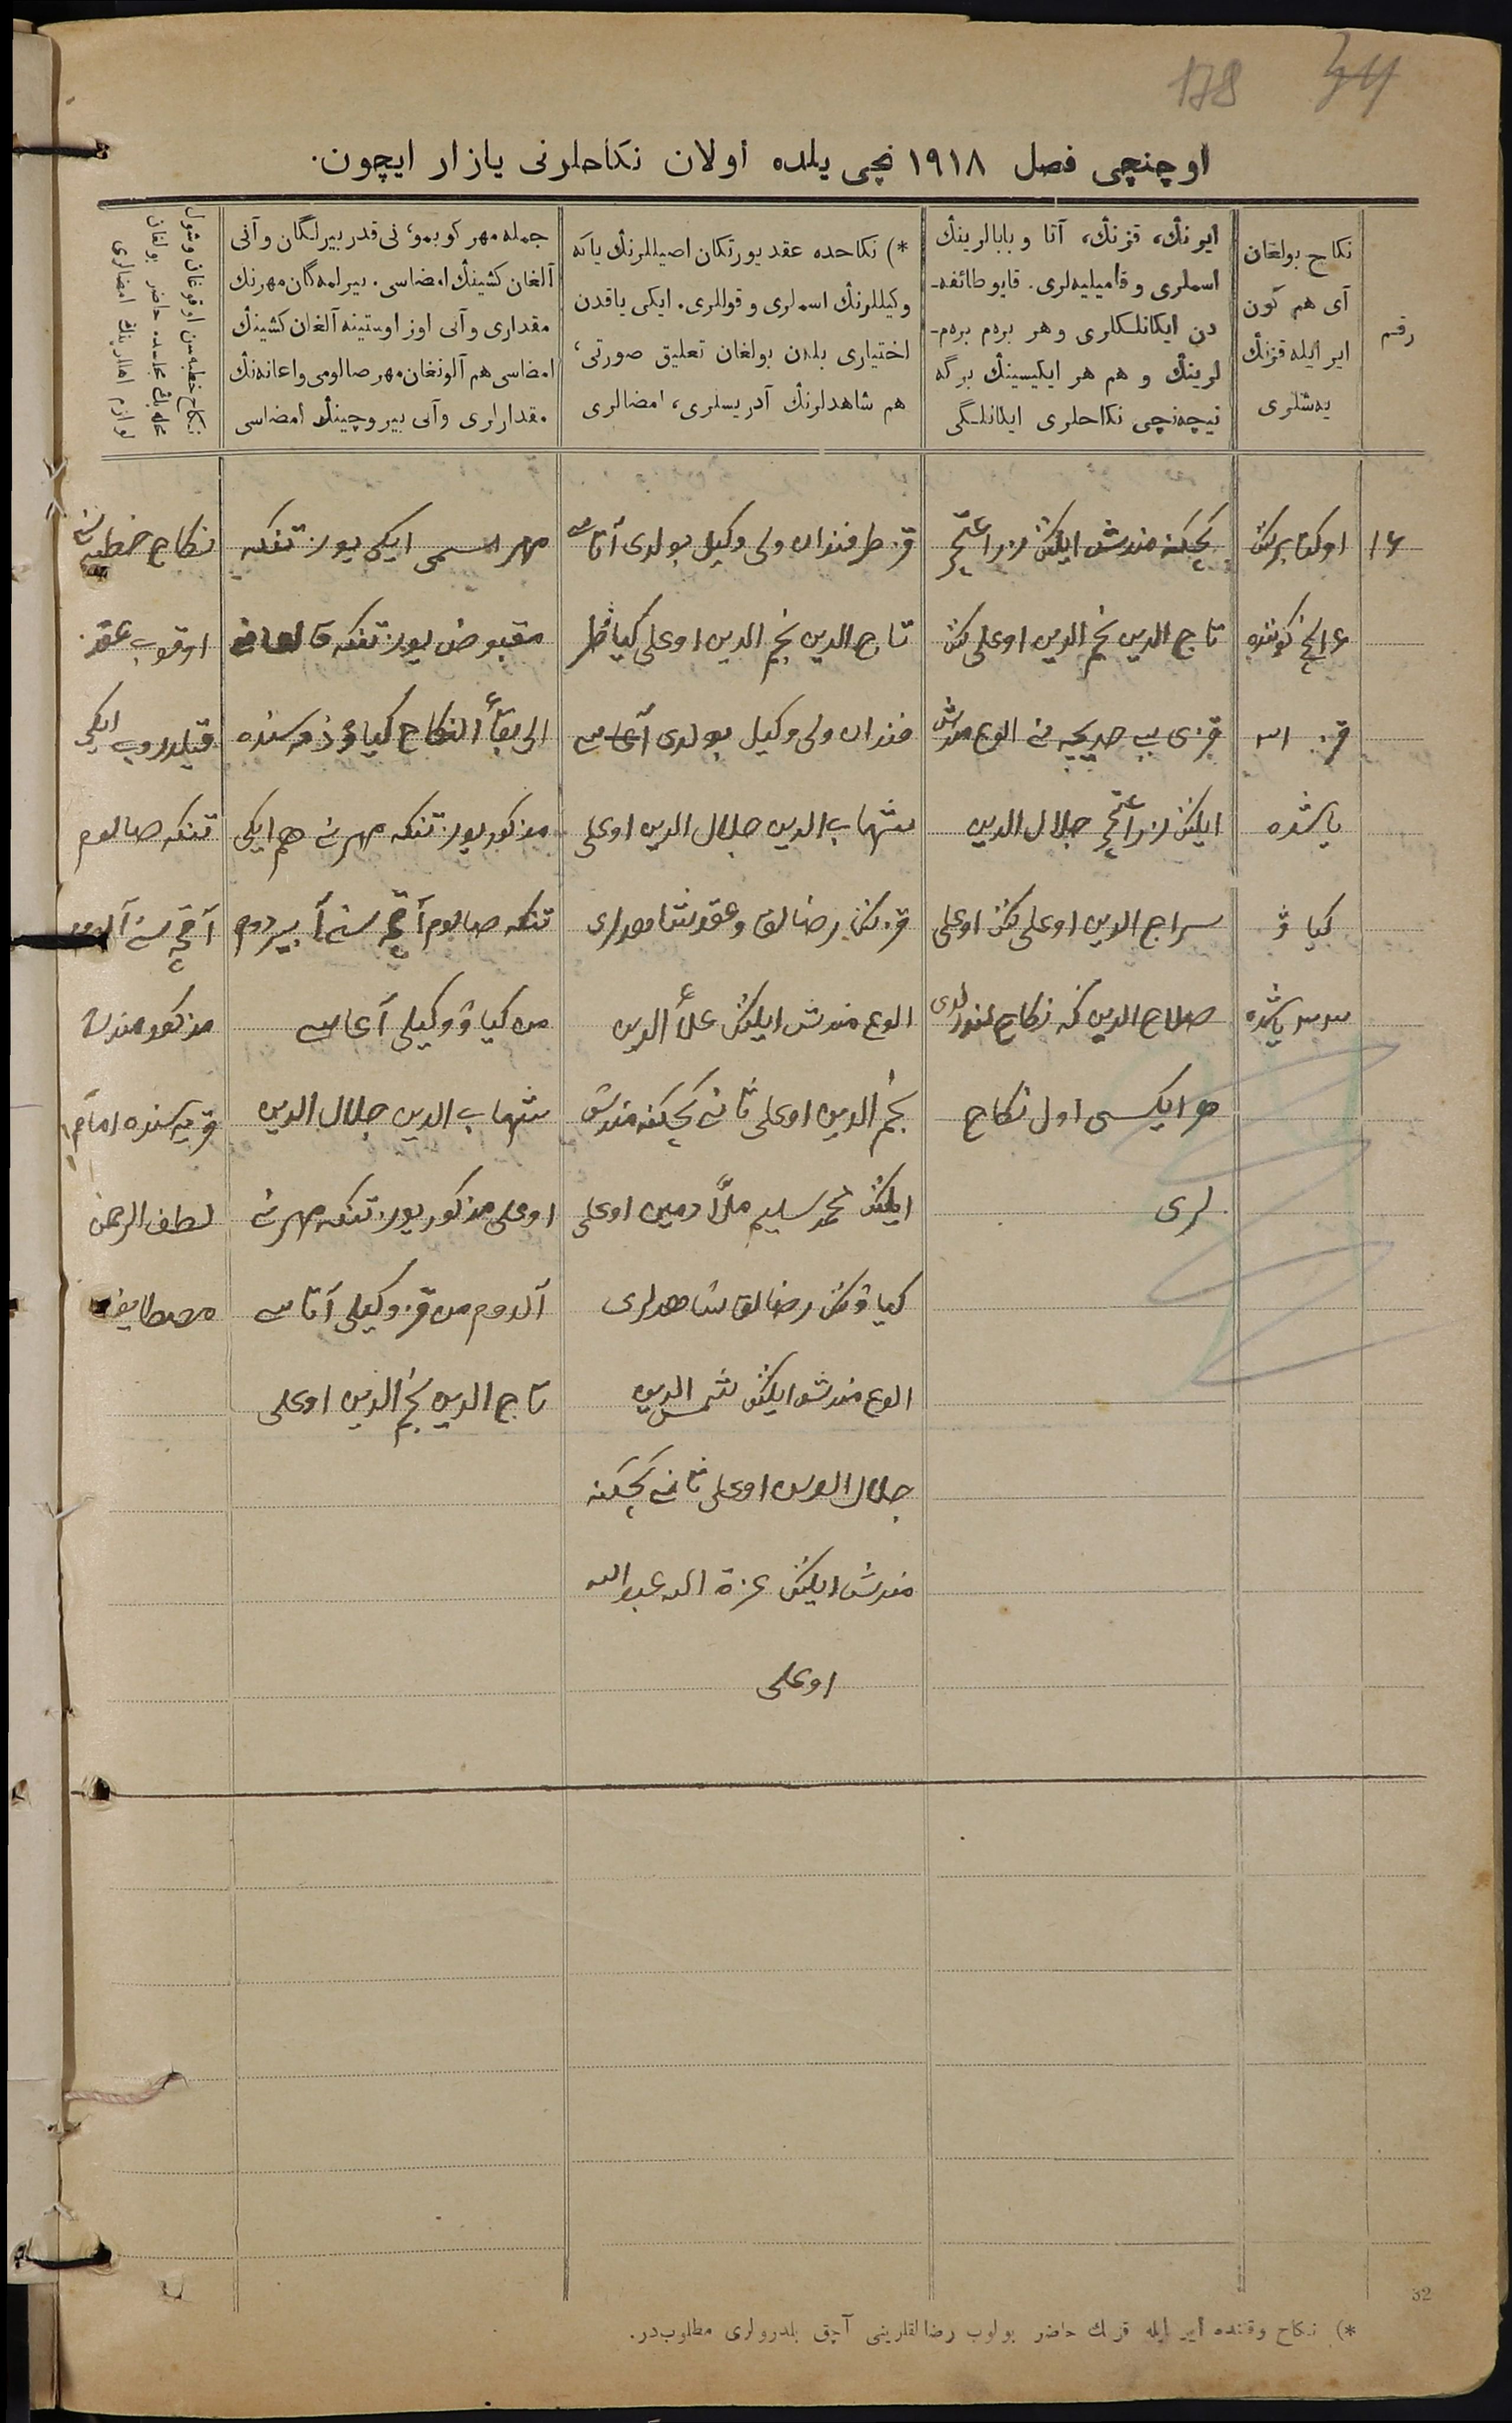 178 34
اوچنچی فصل ١٩١٨ نچی یلده اولان نکاحلرنی یازار ایچون.
رقم
نکاح بولغان
آی هم کون
ایر ایله قزنڭ
یەشلری
ایرنڭ، قزنڭ، آتا و بابالرینڭ
اسملری و فامیلیەلری. قایو طائفه-
دن ایکانلکلری و هر برەم برەم-
لرینڭ و هم هر ایکیسینڭ برگه
نیچەنچی نکاحلری ایکانلگی
*) نکاحده عقد یورتکان اصیللرنڭ یاکه
وکیللرنڭ اسملری و قوللری. ایکی یاقدن
اختیاری بلەن بولغان تعلیق صورتی،
هم شاهدلرنڭ آدریسلری، امضالری
جمله مهر کوبمو، نی قدر بیرلگان و آنی
آلغان کشینڭ امضاسی. بیرلمەگان مهرنڭ
مقداری و آنی اوز اوستینه آلغان کشینڭ
امضاسی هم آلونغان مهر صالومی و اعانەنڭ
مقدارلری و آنی بیروچینڭ امضاسی
نکاح خطبەسن اوقوغان و شول
مجلسده حاضر بولغان
امضالری
١۶
اوکتابرنڭ
کونندە
قز ٢١
یاشده
کیاو
٢٣ یاشده
کچکنه مندش ایلینڭ
تاج الدین نجم الدین اوغلی نڭ
قزی بی خدیجه نی الوغ مندش
ایلینڭ جلال الدین
سراج الدین اوغلی نڭ اوغلی
صلاح الدین که نکاح
هر ایکسی اول نکاح
لری
قز طرفندان ولی وکیل بولدی آتاسی
تاج الدین نجم الدین اوغلی کیاو طر
فندان ولی وکیل بولدی آغاسی
شهاب الدین جلال الدین اوغلی
قز نڭ رضالق و عقد شاهدلری
الوغ مندش ایلینڭ علاء الدین
نجم الدین اوغلی ثانی کچکنه مندش
ایلینڭ محمد سلیم اوغلی
کیاونڭ رضالق شاهدلری
الوغ مندش ایلینڭ شمس الدین
جلال الدین اوغلی ثانی کچکنه
مندش ایلینڭ عزة الله عبدالله
اوغلی
مهر مسمی ایکی یوز تنکه
مقبوض یوز تنکه قالغانی
الی بقاء النکاح کیاو ذمەسنده
مذکور یوز تنکه مهرنی هم ایکی
تنکه صالوم آقچەسنی بیردوم
من کیاو وکیلی آغاسی
شهاب الدین جلال الدین
اوغلی مذکور یوز تنکه مهرنی
آلدوم من قز وکیلی آتاسی
تاج الدین نجم الدین اوغلی
نکاح خطبەسنی
اوقوب عقد
قیلدروب ایکی
تنکه صالوم
آقچەسنی آلدوم
مذکور مندش
قریەسنده امام
لطف الرحمن
32
*) نکاح وقتنده ایر ایله قزنڭ حاضر بولوب رضالقلرینی آچق بلدرولری مطلوب‌در.